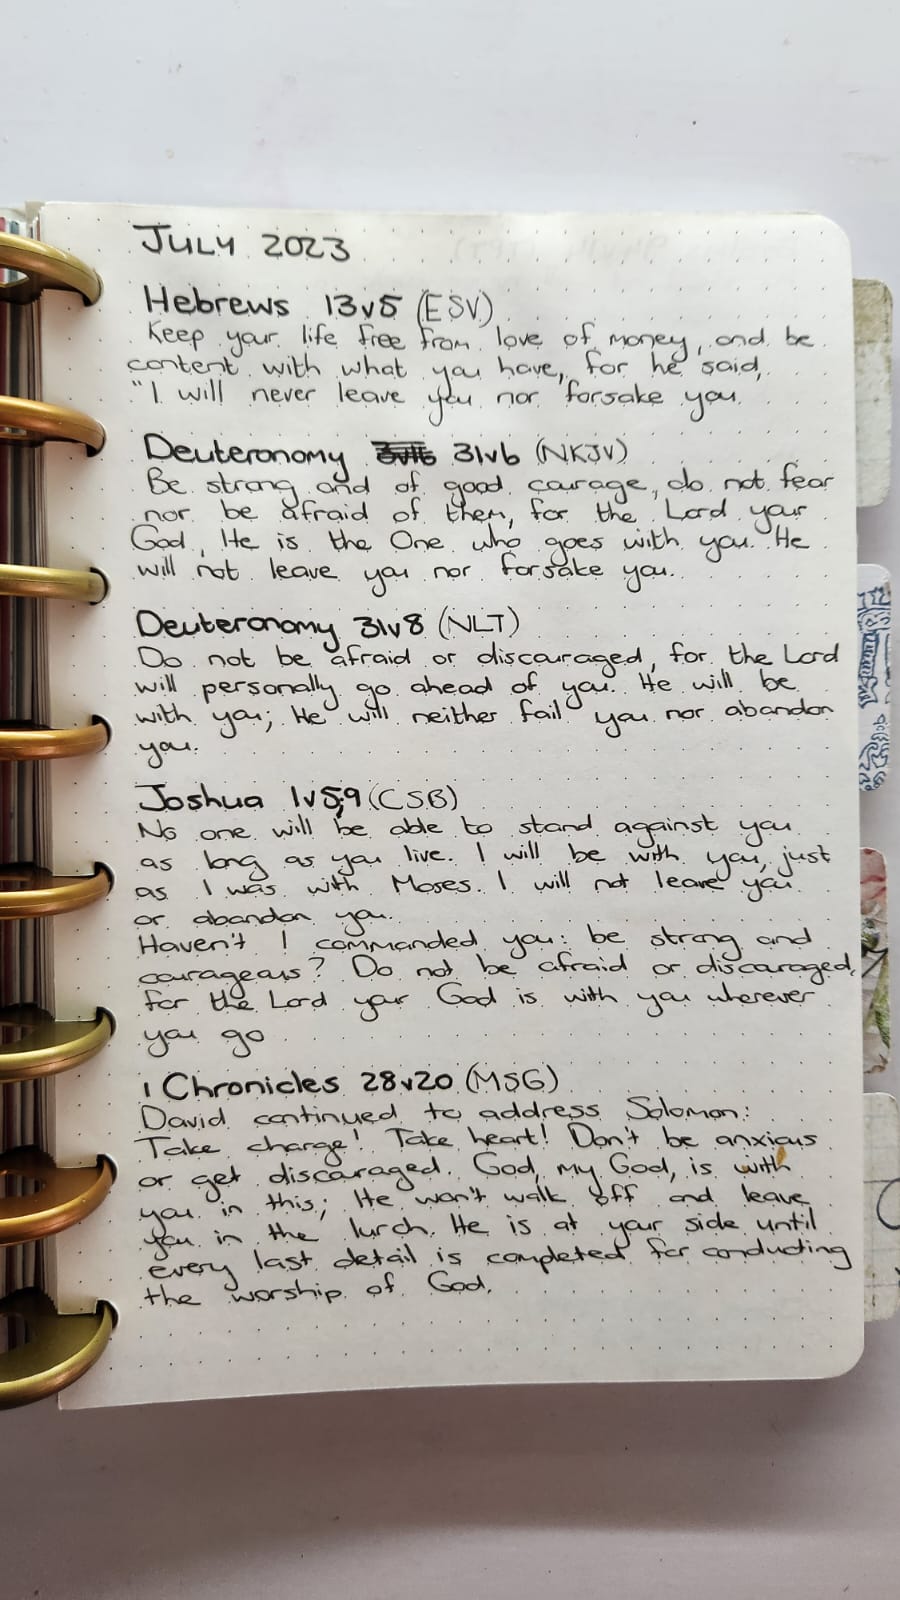 JULY 2023
Hebrews 13v5 (ESV)
Keep your life free from love of money, and be
content with what you have, for he said,
"I will never leave you nor forsake you.
Deuteronomy 31v6 (NKJV)
Be strong and of good courage, do not fear
nor be afraid of them, for the Lord your
God, He is the One who goes with you. He
will not leave you nor forsake you.
Deuteronomy 31v8 (NLT)
Do not be afraid or discouraged, for the Lord
will personally go ahead of you. He will be
with you; He will neither fail you nor abandon
you.
Joshua 1v5,9 (CSB)
No one will be able to stand against you
as long as you live. I will be with you, just
as I was with Moses. I will not leave you
or abandon you.
Haven't I commanded you: be strong and
courageous? Do not be afraid or discouraged,
for the Lord your God is with you wherever
you go
1 Chronicles 28v20 (MSG)
David continued to address Solomon:
Take charge! Take heart! Don't be anxious
or get discouraged. God, my God, is with
you in this; He won't walk off and leave
you in the lurch. He is at your side until
every last detail is completed for conducting
the worship of God.